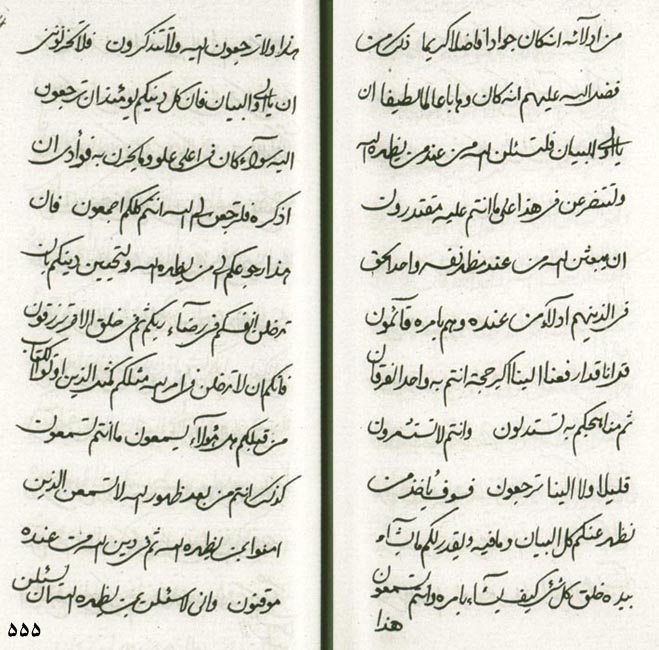 من ادلائه انه كان جوادا فاضلا كريما ذكر من
فضل الله عليهم انه كان وهابا عالما لطيفا ان
يا اولي البيان فلتسئلن الله من عند من يظهره الله
ولتتضرعن في هذا على ما انتم عليه مقتدرون
ان يبعثن الله من عند مظهر نفسه واحد الحق
في الذينهم ادلاء من عنده وهم بامره قائمون
قل انا قد ارفعنا الينا اكبر حجة انتم به واحد الفرقان
ثم مناهجكم به تستدلون وانتم لا تشعرون
قليلا ولا الينا ترجعون فسوف ياخذ من
يظهر عنكم كل البيان وما فيه ويقدر لكم ما يشاء
بيده خلق كل شيء كيف يشاء بامره وانتم لتسمعون
هذا
هذا ولا ترجعون اليه ولا تتذكرون فلا تحزنوني
ان يا اولي البيان فان كل دينكم يومئذ ان ترجعون
اليه سواء كان في اعلى علو وما يحزن به فؤادي ان
اذكره فلترجعن الى الله انتم كلكم اجمعون فان
هذا رجوعكم الى من يظهره الله ولتحيين دينكم بان
تدخلن انفسكم في رضاء ربكم ثم في خلق الاخر ترزقون
فانكم ان لا تدخلن في امر الله مثلكم كمثل الذين اوتوا الكتاب
من قبلكم هل هؤلاء يسمعون ما انتم تسمعون
كذلك انتم من بعد ظهور الله لا تسمعن الذين
امنوا بمن يظهره الله ثم في دين الله من عنده
موقنون واني لاسئلن بمن يظهره الله ان يسئلن
۵۵۵